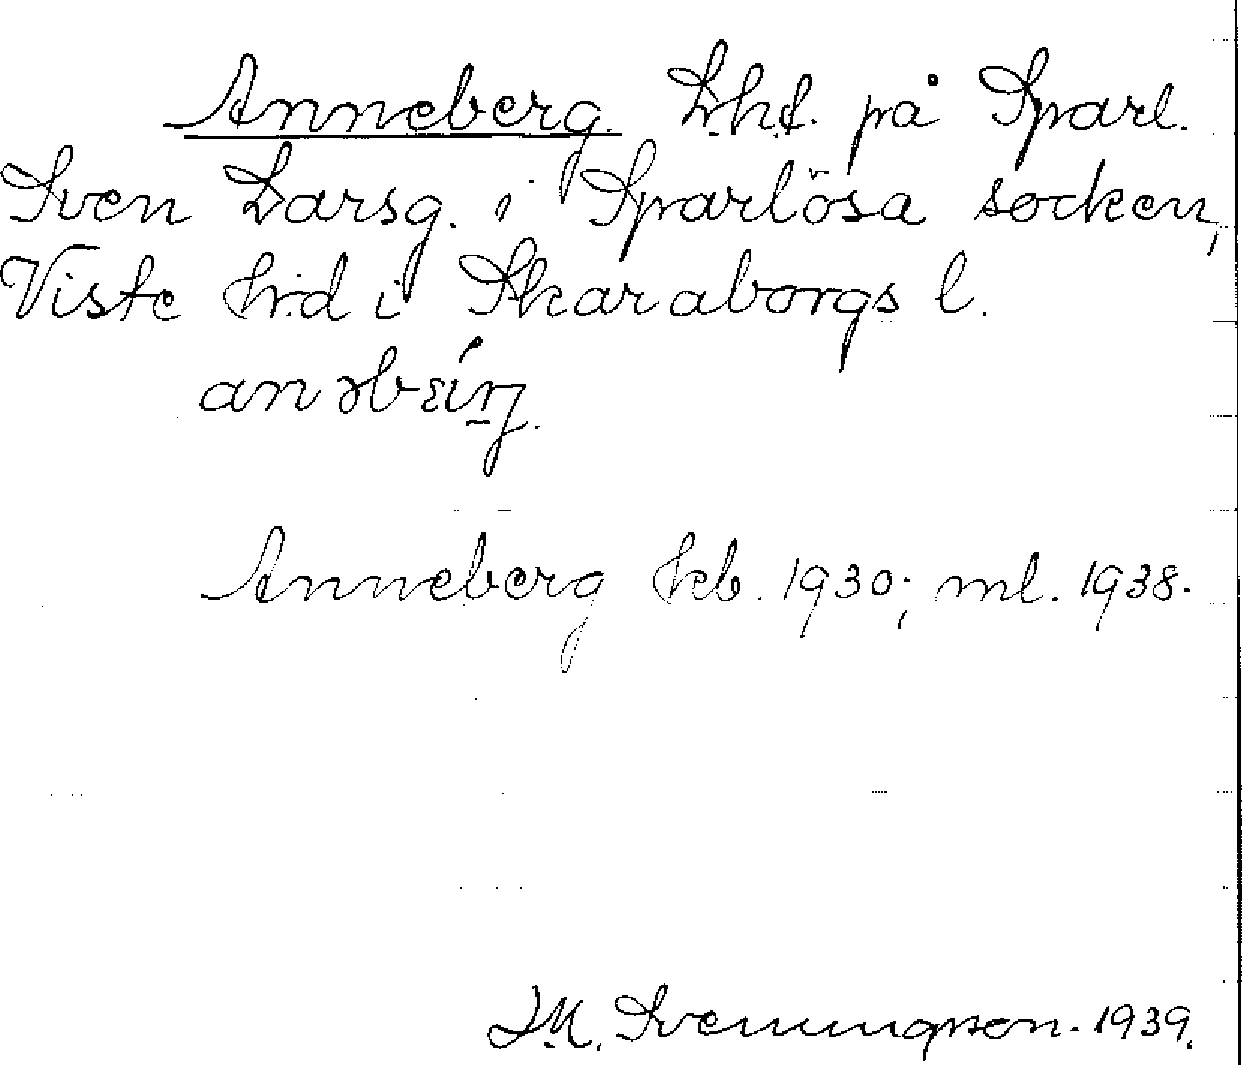 Anneberg. Lht. på Sparl.
Sven Larsg. i Sparlösa socken,
Viste hd i Skaraborgs l.
Anneberg Jeb. 1930; ml. 1938.
I.M. Svenungsson. 1939.